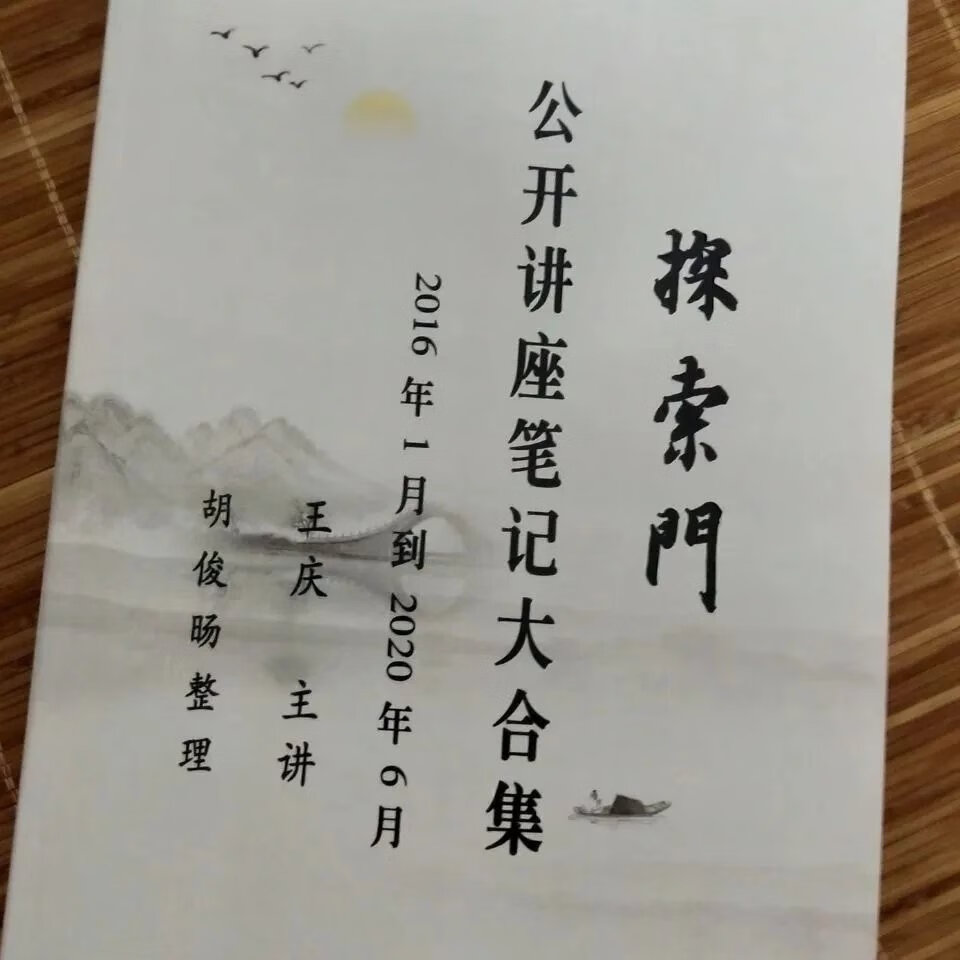 探索門
公开讲座笔记大合集
2016年1月到2020年6月
王庆 主讲
胡俊旸整理